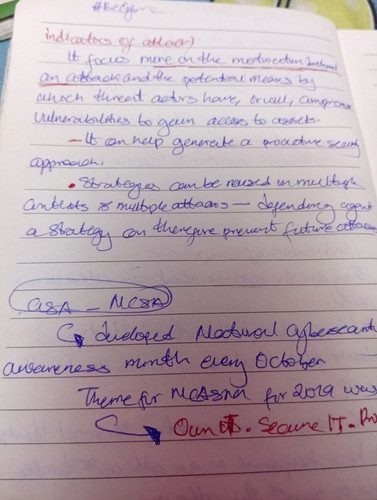 indicators of attack)
It focus more on the motivation behind
an attack and the potential means by
which threat actors have, or will, compromise
vulnerabilities to gain access to assets.
- It can help generate a proactive secuity
approach.
• Strategies can be reused in multiple
contexts & multiple attacks — defending against
a strategy can therefore prevent future attacks
CISA - NCSA
developed National cybersecurit
awareness month every October
Theme for NCASM for 2019 was
Own IT. Secure IT. Pro